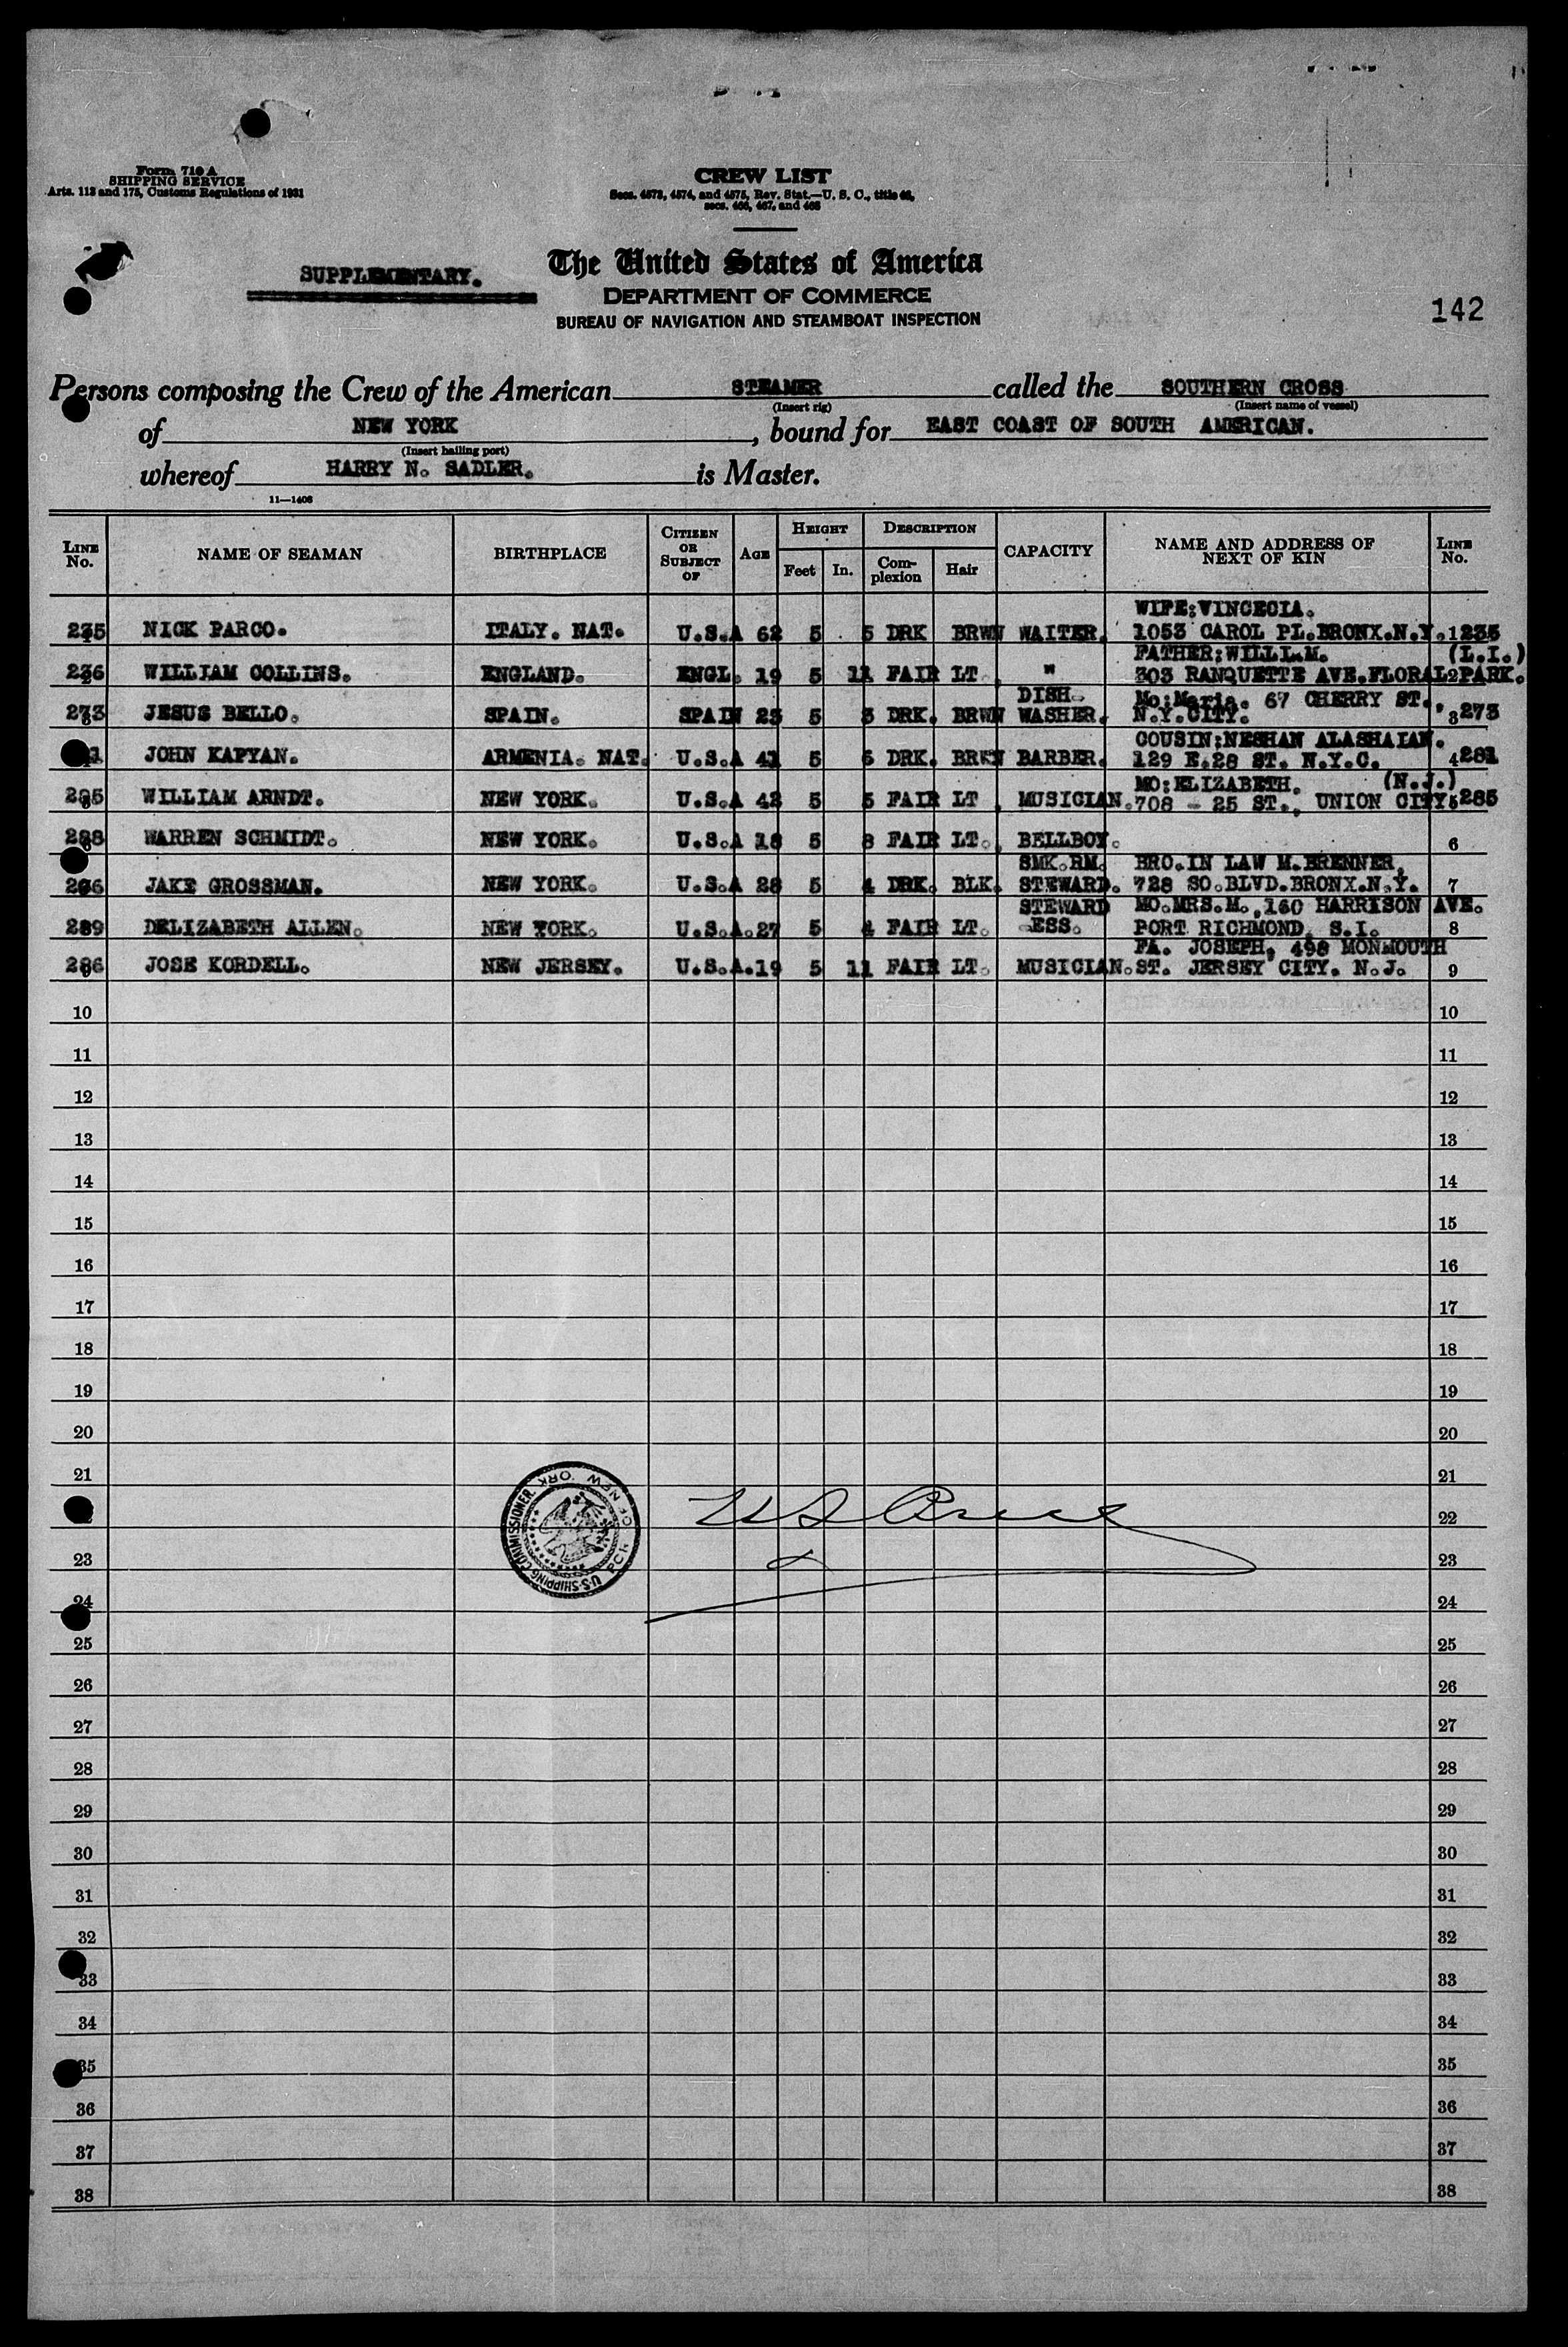 Form 710 A
SHIPPING SERVICE
Arts. 113 and 175, Customs Regulations of 1931
CREW LIST
Secs. 4573, 4574, and 4575, Rev. Stat.—U. S. C., title 46,
secs. 466, 467, and 468
SUPPLEMENTARY.
The United States of America
DEPARTMENT OF COMMERCE
BUREAU OF NAVIGATION AND STEAMBOAT INSPECTION
142
Persons composing the Crew of the American STEAMER called the SOUTHERN CROSS
(Insert rig) (Insert name of vessel)
of NEW YORK, bound for EAST COAST OF SOUTH AMERICAN.
(Insert hailing port)
whereof HARRY N. SADLER. is Master.
11—1408
LINE No. NAME OF SEAMAN BIRTHPLACE CITIZEN OR SUBJECT OF AGE HEIGHT Feet In. DESCRIPTION Complexion Hair CAPACITY NAME AND ADDRESS OF NEXT OF KIN LINE No.
WIFE;VINCECIA.
235 NICK PARCO. ITALY. NAT. U.S.A 62 5 5 DRK BRWN WAITER. 1053 CAROL PL.BRONX.N.Y. 1 235
FATHER;WILLIAM. (L.I.)
236 WILLIAM COLLINS. ENGLAND. ENGL. 19 5 11 FAIR LT. " 303 RANQUETTE AVE.FLORAL 2 PARK.
DISH Mo;Maria. 67 CHERRY ST.
273 JESUS BELLO. SPAIN. SPAIN 23 5 3 DRK. BRWN WASHER. N.Y.CITY. 3 273
COUSIN;NESHAN ALASHAIAN.
JOHN KAPYAN. ARMENIA. NAT. U.S.A 41 5 6 DRK. BRWN BARBER. 129 E.28 ST. N.Y.C. 4 281
MO;ELIZABETH. (N.J.)
285 WILLIAM ARNDT. NEW YORK. U.S.A 42 5 5 FAIR LT. MUSICIAN. 708 - 25 ST., UNION CITY 5 285
288 WARREN SCHMIDT. NEW YORK. U.S.A 18 5 8 FAIR LT. BELLBOY. 6
SMK.RM. BRO.IN LAW M.BRENNER,
JAKE GROSSMAN. NEW YORK. U.S.A 28 5 4 DRK. BLK. STEWARD. 728 SO.BLVD.BRONX.N.Y. 7
STEWARD MO.MRS.M.,160 HARRISON AVE.
289 DELIZABETH ALLEN. NEW YORK. U.S.A. 27 5 4 FAIR LT. -ESS. PORT RICHMOND, S.I. 8
FA. JOSEPH, 498 MONMOUTH
286 JOSE KORDELL. NEW JERSEY. U.S.A. 19 5 11 FAIR LT. MUSICIAN. ST. JERSEY CITY. N.J. 9
10 10
11 11
12 12
13 13
14 14
15 15
16 16
17 17
18 18
19 19
20 20
21 21
22
23 23
24 24
25 25
26 26
27 27
28 28
29 29
30 30
31 31
32 32
33 33
34 34
35 35
36 36
37 37
38 38
U.S. SHIPPING COMMISSIONER. PORT OF NEW YORK